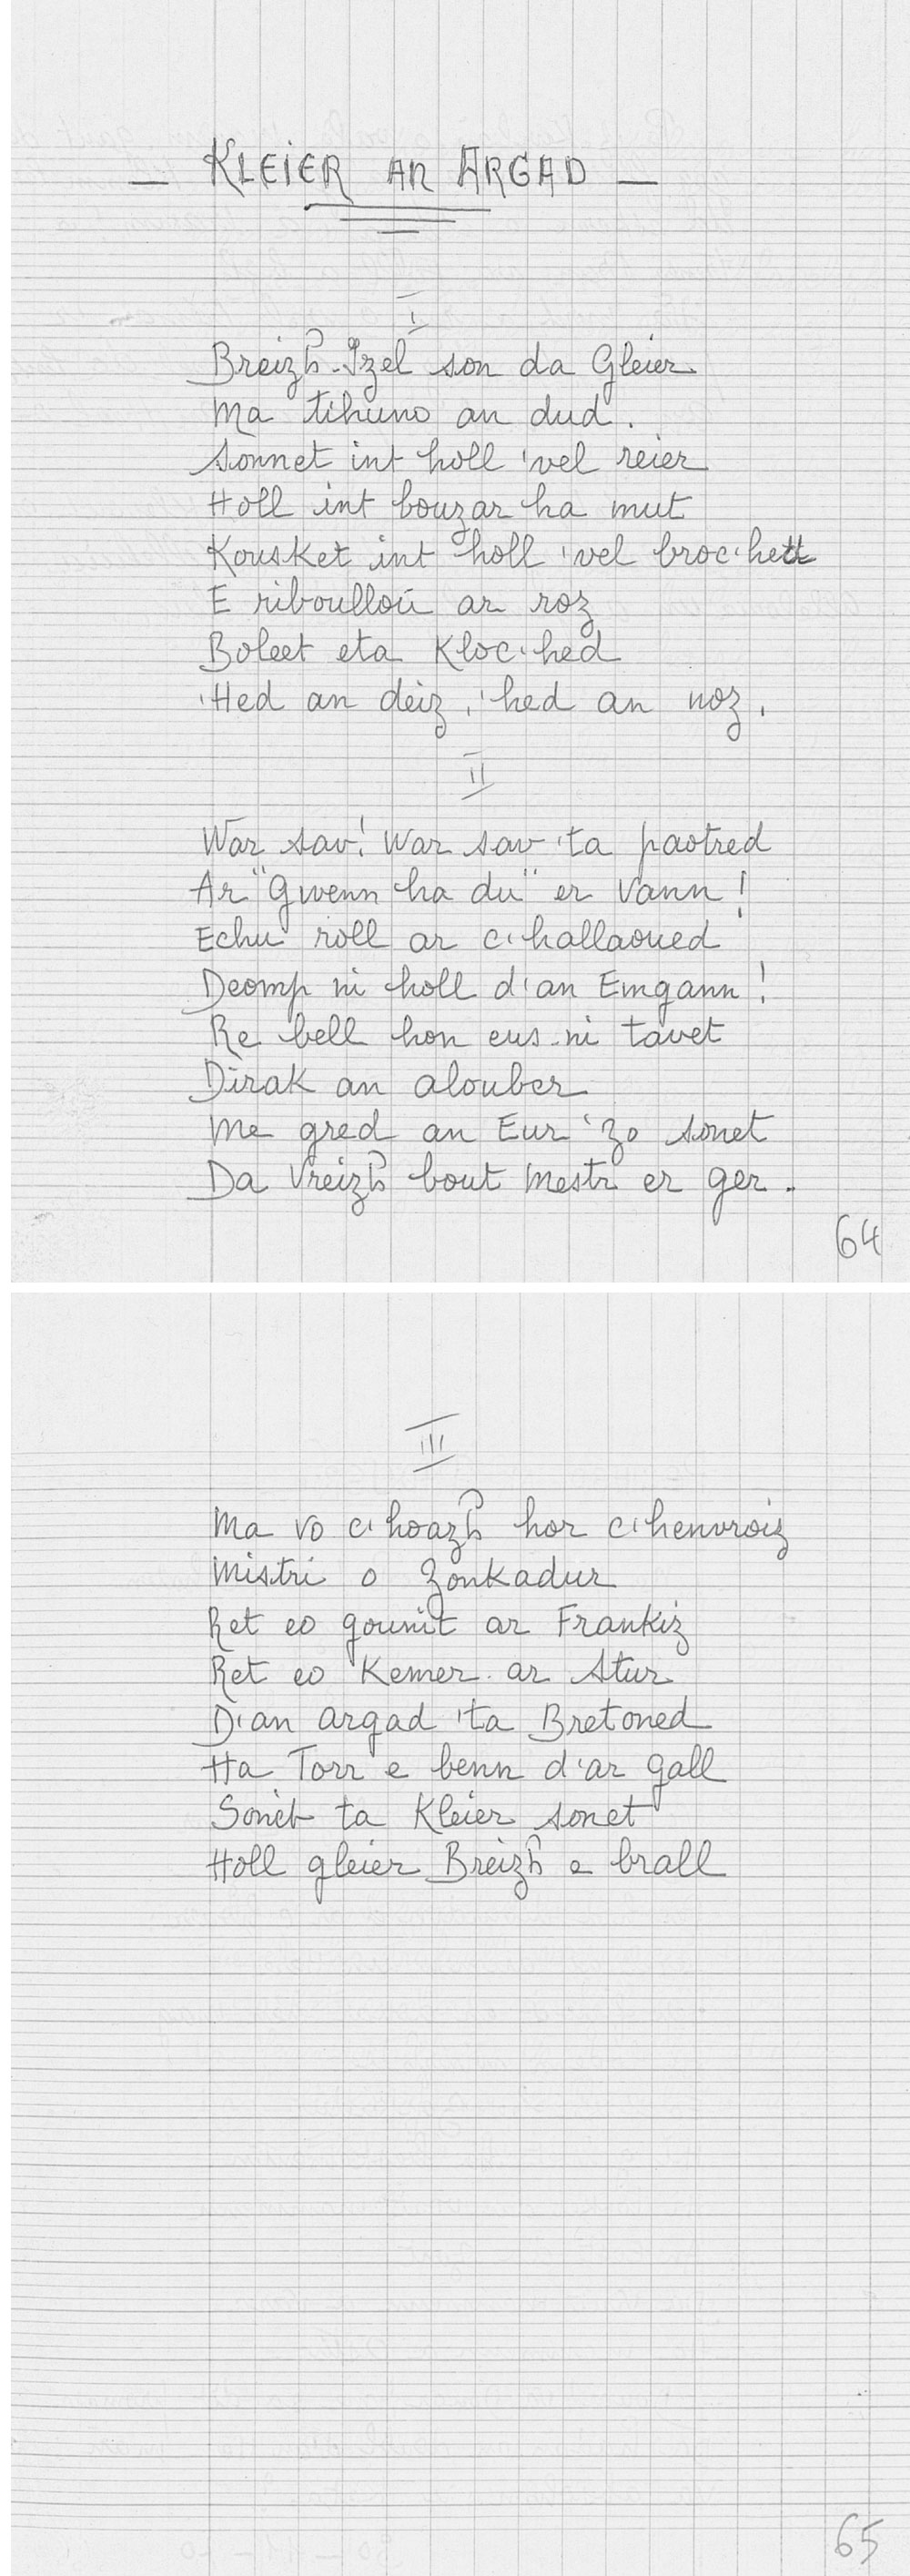 — KLEIER AN ARGAD —
I
Breizh-Izel son da Gleier
Ma tihuno an dud.
Sonnet int holl 'vel reier
Holl int bouzar ha mut
Kousket int holl 'vel broc'hett
E riboulloù ar roz
Boleet eta Kloc'hed
'Hed an deiz, 'hed an noz.
II
War sav! War sav 'ta paotred
Ar "Gwenn ha du" er Vann!
Echu roll ar c'hallaoued
Deomp ni holl d'an Emgann!
Re bell hon eus-ni tavet
Dirak an alouber
Me gred an Eur 'zo sonet
Da Vreizh bout Mestr er ger.
64
III
Ma vo c'hoazh hor c'henvroiz
Mistri o Zonkadur
Ret eo gounit ar Frankiz
Ret eo Kemer ar Stur
D'an Argad 'ta Bretoned
Ha Torr e benn d'ar Gall
Sonet ta Kleier sonet
Holl gleier Breizh a brall
65